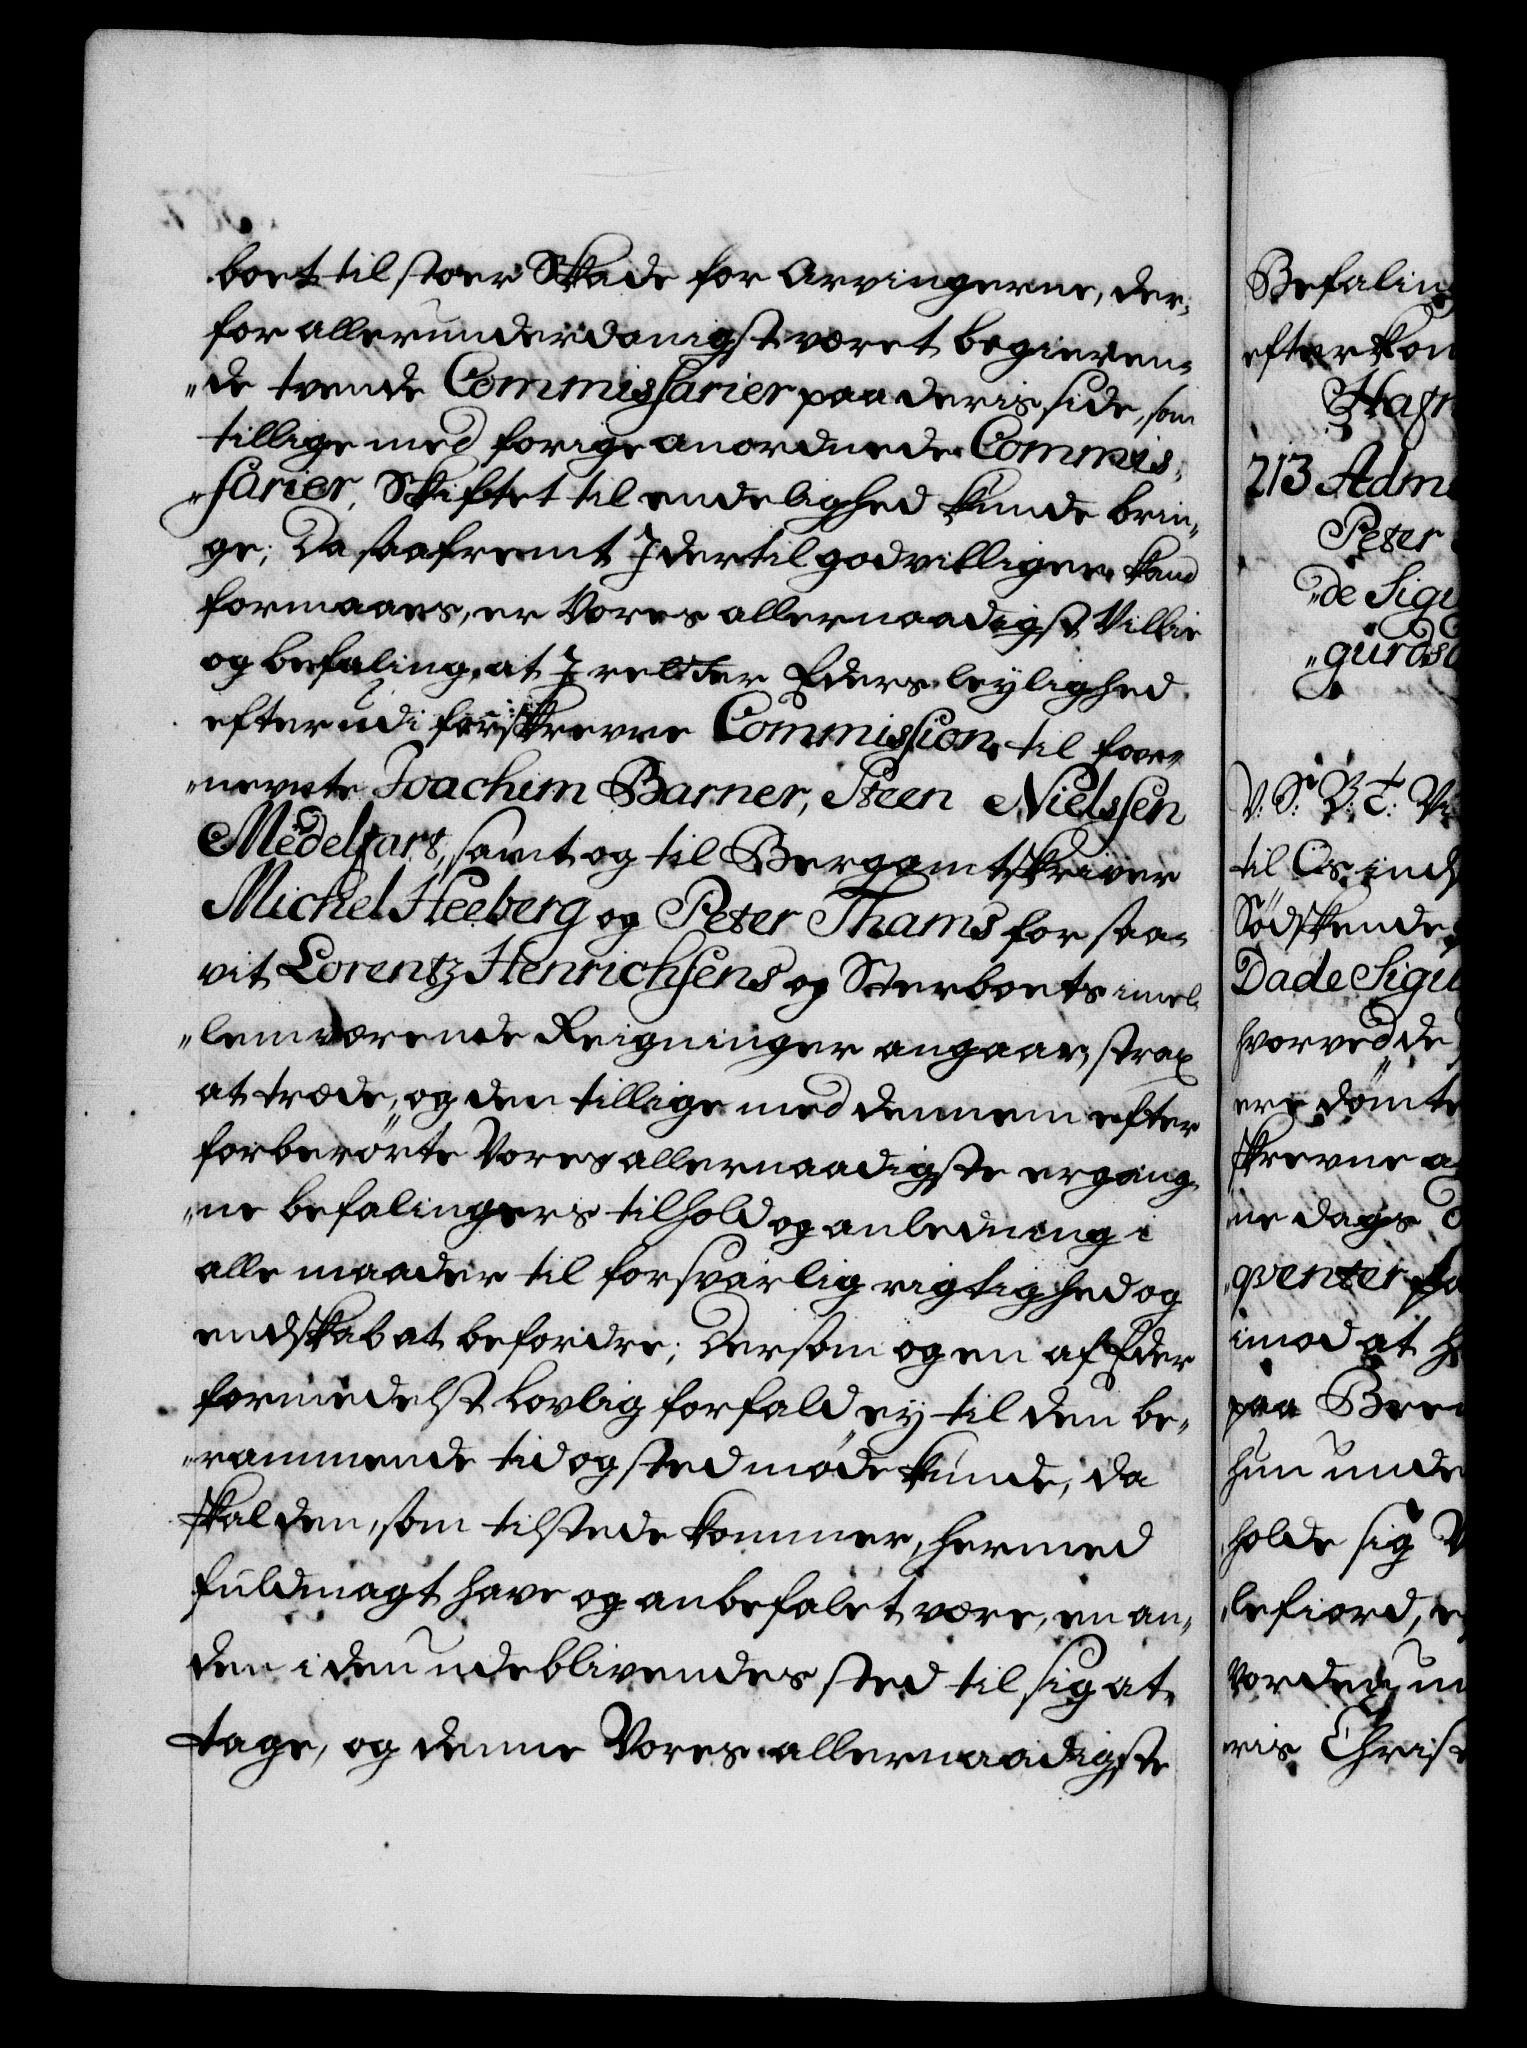 boet til stoer Skade for Arvingerne, der-
for allerunderdanigst været begieren-
"de tvende Commissarier paa deris side, som
tillige med forige anordnede Commis-
"sarier, Skiftet til endelighed kunde brin-
ge; Da saafremt I dertil godvilligen kand
formaaes, er Vores allernaadigst Villie
og befaling, at I rellter Eders leylighed
efter udi forskrevne Commission, til for-
"nevnte Joachim Barner, Steen Nielssen
Medelfars, samt og til Bergamtskriver
Michel Heeberg og Peter Thams for saa-
vit Lorentz Henrichsens og Sterboets imel-
"lemværende Reigninger angaar, strax
at træde, og den tillige med dennem efter
forberørte Vores allernaadigste ergang-
"ne befalingers tilhold og anledning i
alle maader til forsvarlig rigtighed og
endskab at befordre; Dersom og en af Eder
formedelst Lovlig forfald ey til den be-
"rammende tid og sted møde kunde, da
skal den, som tilstede kommer, hermed
fuldmagt have og anbefalet være, en an-
den i den udeblivendes sted til sig at
tage, og denne Vores allernaadigste
Befaling
efterkom
Hafn
213 Adm
Peter
"de Sigu
"gurds
V: S: B: T: Vi
til Os inds
Södskende
Dade Sigu
hvorved de
ere dömte
skrevne a
ne dags
"qventer fo
imod at h
paa Bren
hun unde
holde sig V
"lefiord, e
vorden, un
ris Christ